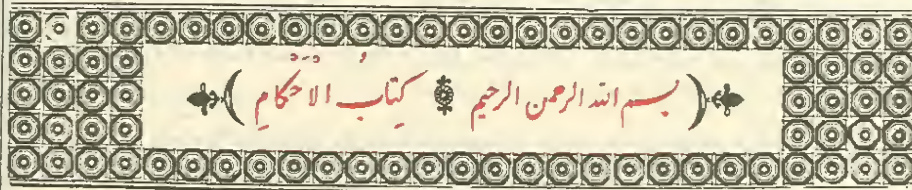 ﴿ بسم الله الرحمن الرحيم ۞ كِتَابُ الْاَحْكَامِ ﴾